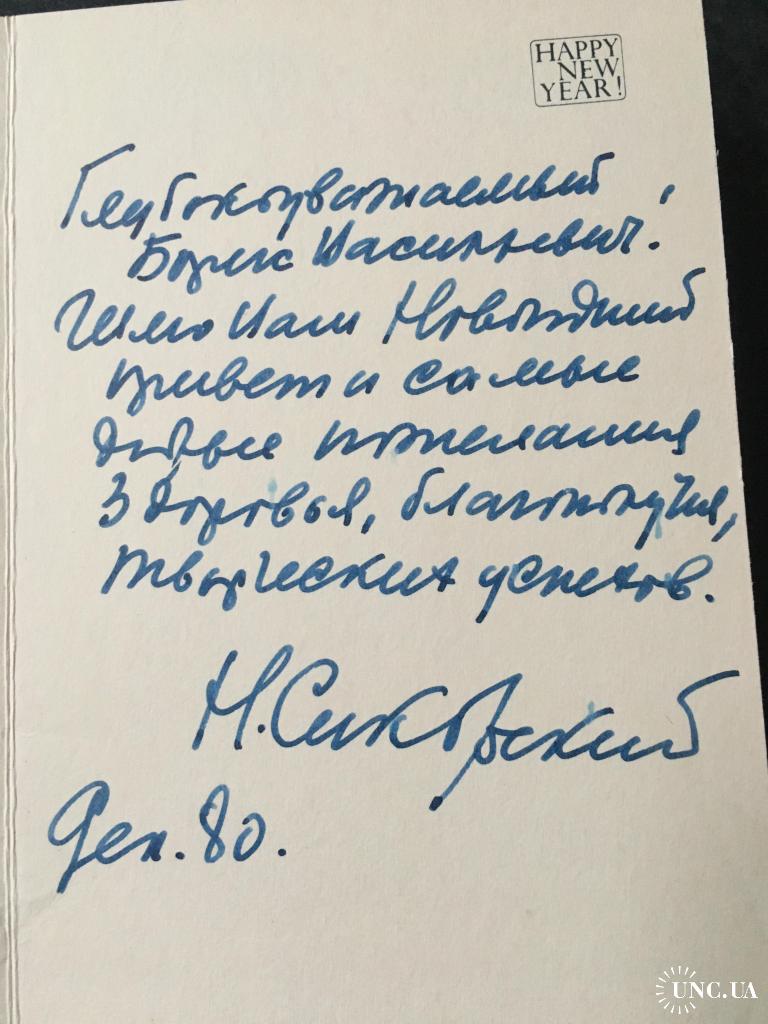 HAPPY
NEW
YEAR!
Глубокоуважаемый,
Борис Васильевич.
Шлю Вам Новогодний
привет и самые
добрые пожелания
здоровья, благополучия,
творческих успехов.
Н. Сикорский
Дек. 80.
UNC.UA